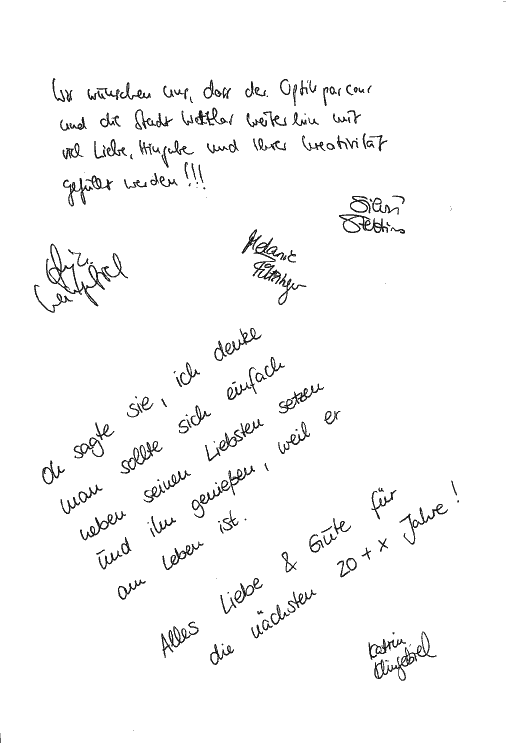 Wir wünschen uns, dass der Optikparcour
und die Stadt Wetzlar weiterhin mit
viel Liebe, Hingabe und Ihrer Kreativität
gefüllt werden!!!
Melanie
Oh sagte sie, ich denke
man sollte sich einfach
neben seinen Liebsten setzen
und ihn genießen, weil er
am Leben ist.
Alles Liebe & Güte für
die nächsten 20 + x Jahre!
Katrin
Klingebiel